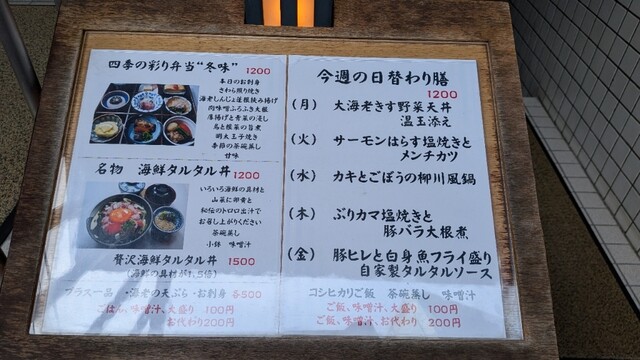 四季の彩り弁当"冬味" 1200
本日のお刺身
さわら照り焼き
海老しんじょ蓮根挟み揚げ
肉味噌ふろふき大根
唐揚げと青菜の浸し
鳥と根菜の旨煮
明太玉子焼き
季節の茶碗蒸し
甘味
名物 海鮮タルタル丼 1200
いろいろ海鮮の具材と
山菜に卵黄と
秘伝のトロロ出汁で
お召し上がりください
茶碗蒸し
小鉢 味噌汁
贅沢海鮮タルタル丼 1500
(海鮮の具材が1,5倍)
プラス一品 ・海老の天ぷら・お刺身 各500
ごはん、味噌汁、大盛り 100円
お代わり200円
今週の日替わり膳
1200
(月) 大海老きす野菜天丼
温玉添え
(火) サーモンはらす塩焼きと
メンチカツ
(水) カキとごぼうの柳川風鍋
(木) ぶりカマ塩焼きと
豚バラ大根煮
(金) 豚ヒレと白身魚フライ盛り
自家製タルタルソース
コシヒカリご飯 茶碗蒸し 味噌汁
ご飯、味噌汁、大盛り 100円
ご飯、味噌汁、お代わり 200円